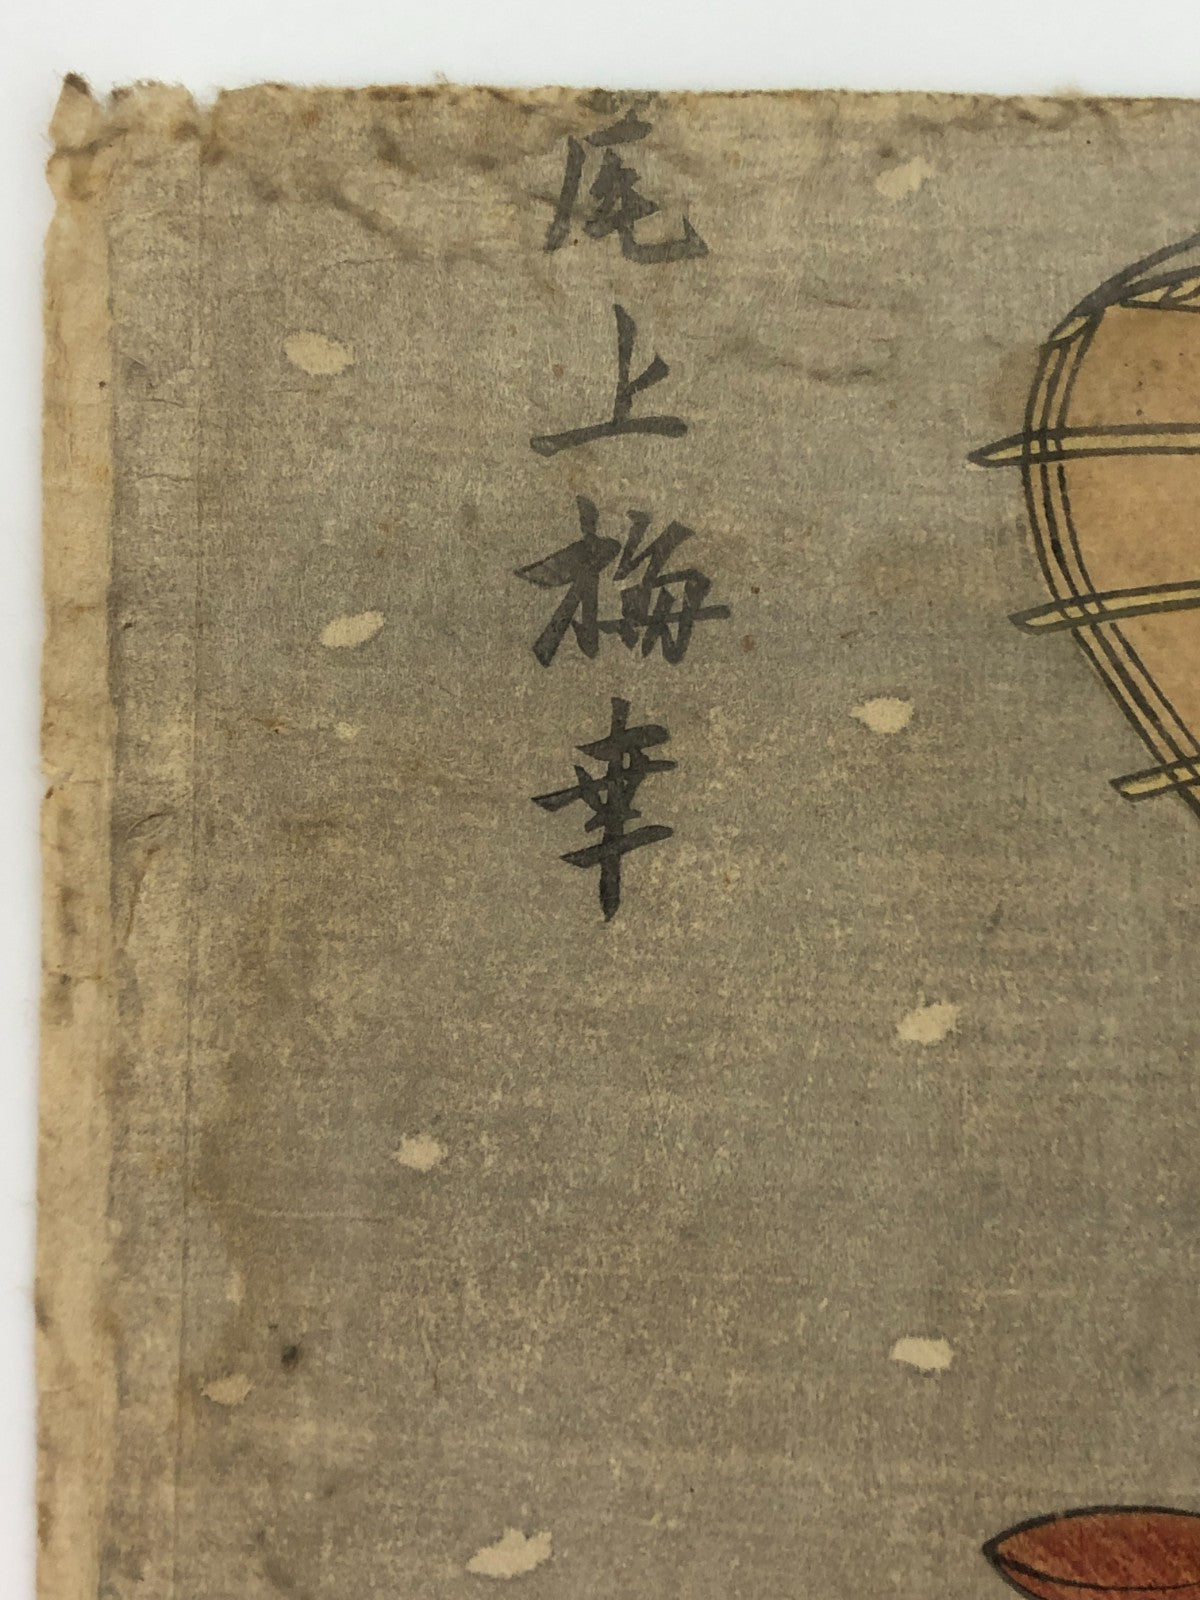 尾上梅幸